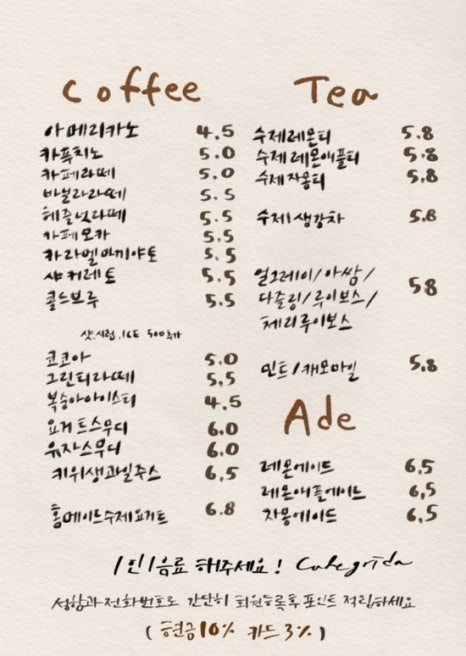 Coffee
아메리카노 4.5
카푸치노 5.0
카페라떼 5.0
바닐라라떼 5.5
헤즐넛라떼 5.5
카페모카 5.5
카라멜마끼야또 5.5
샤커레토 5.5
콜드브루 5.5
샷.시럽.ICE 500추가
코코아 5.0
그린티라떼 5.5
복숭아아이스티 4.5
요거트스무디 6.0
유자스무디 6.0
키위생과일주스 6.5
홈메이드수제요거트 6.8
Tea
수제레몬티 5.8
수제레몬애플티 5.8
수제자몽티 5.8
수제생강차 5.8
얼그레이/아쌈/
다즐링/루이보스/ 5.8
체리루이보스
민트/캐모마일 5.8
Ade
레몬에이드 6.5
레몬애플에이드 6.5
자몽에이드 6.5
1인1음료 해주세요!
성함과 전화번호로 간단히 회원등록후 포인트 적립하세요
(현금10% 카드3%)